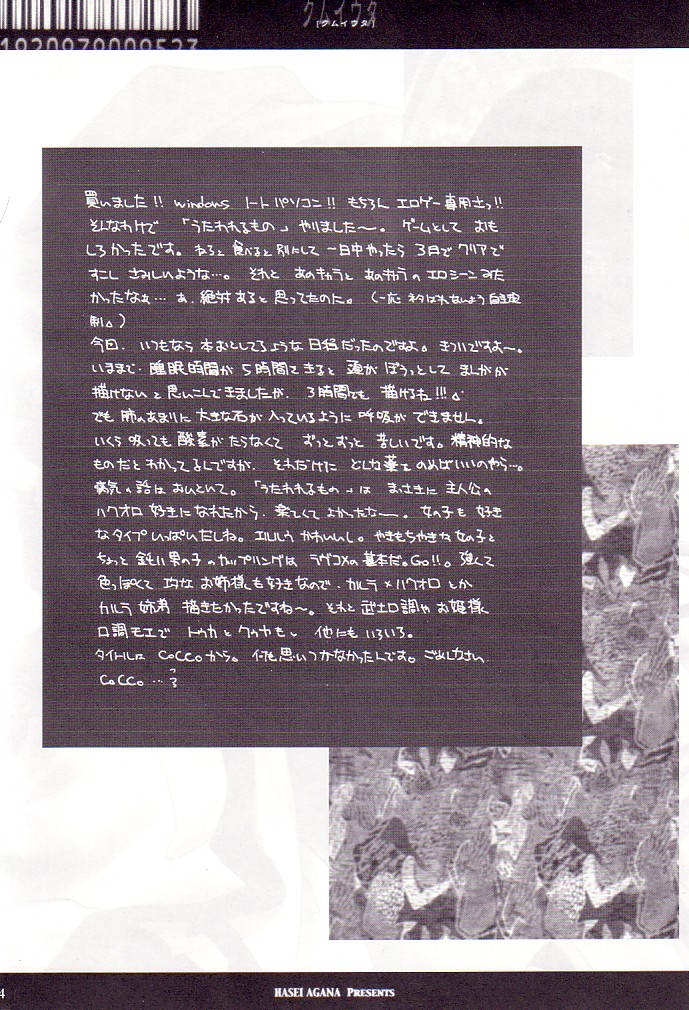 クムイウタ
[クムイウタ]
1920979009523
買いました!! windows ノートパソコン!! もちろん エロゲー専用さっ!!
そんなわけで 「うたわれるもの」 やりました〜。 ゲームとして おも
しろかったです。 ねると 食べると 別にして 一日中やったら 3日で クリアで
すこし さみしいような…。 それと あのキャラと あのキャラの エロシーンみた
かったなぁ… あ、絶対あると思ってたのに。 (一応 ネタばれないよう 自主規
制。)
今回、いつもなら 本おとしてるような 日程だったのですよ。 きついですよ〜。
いままで、睡眠時間が 5時間できると 頭が ぼうっとして まんがが
描けない と 思いこんできましたが、 3時間でも 描けるね!!!
でも 肺のあまりに 大きな石が 入っているように 呼吸が できません。
いくら 吸っても 酸素が たらなくて ずっとずっと 苦しいです。 精神的な
ものだと わかってるんですが、 それだけに どんな薬を のめばいいのやら…。
病気の話は おいといて。 「うたわれるもの」は まっさきに 主人公の
ハクオロ 好きに なれたから、 楽しくて よかったなー。 女の子も 好き
なタイプ いっぱいだしね。 エルルゥ かわいいし。 やきもちやきな 女の子と
ちょっと 鈍い 男の子 のカップリングは ラヴコメの 基本だ。Go!!。 強くて
色っぽくて 巧みな お姉様も好きなので、 カルラ×ハクオロ とか
カルラ 姉弟 描きたかったですね〜。 それと 武士口調や お姫様
口調モエで トウカ と クゥヤも。 他にも いろいろ。
タイトルは coccoから。 何も思いつかなかったんです。 ごめんなさい
cocco …
4
HASEI AGANA PRESENTS